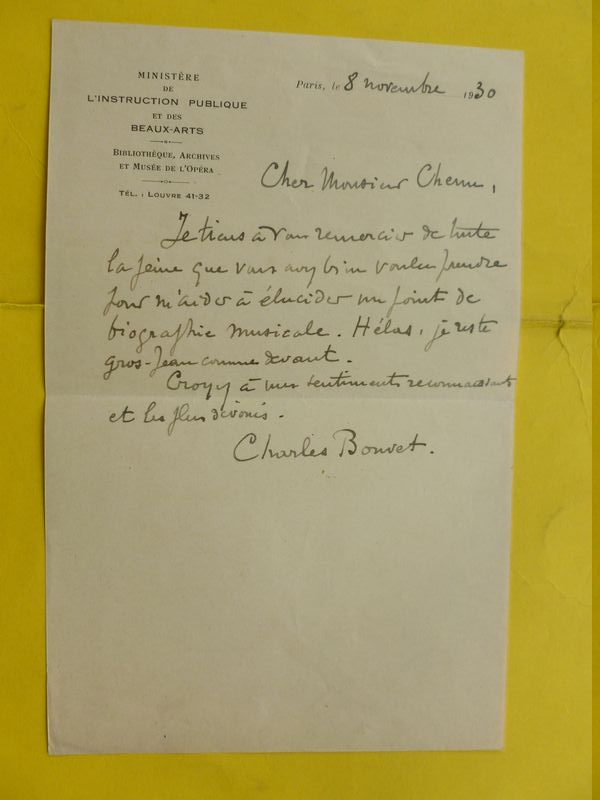 MINISTÈRE
DE
L'INSTRUCTION PUBLIQUE
ET DES
BEAUX-ARTS
BIBLIOTHÈQUE, ARCHIVES
ET MUSÉE DE L'OPÉRA
TÉL. : LOUVRE 41-32
Paris, le 8 novembre 1930
Cher Monsieur Chenu,
Je tiens à vous remercier de toute
la peine que vous avez bien voulu prendre
pour m'aider à élucider un point de
biographie musicale. Hélas, je reste
gros-Jean comme devant.
Croyez à mes sentiments reconnaissants
et les plus dévoués.
Charles Bouvet.